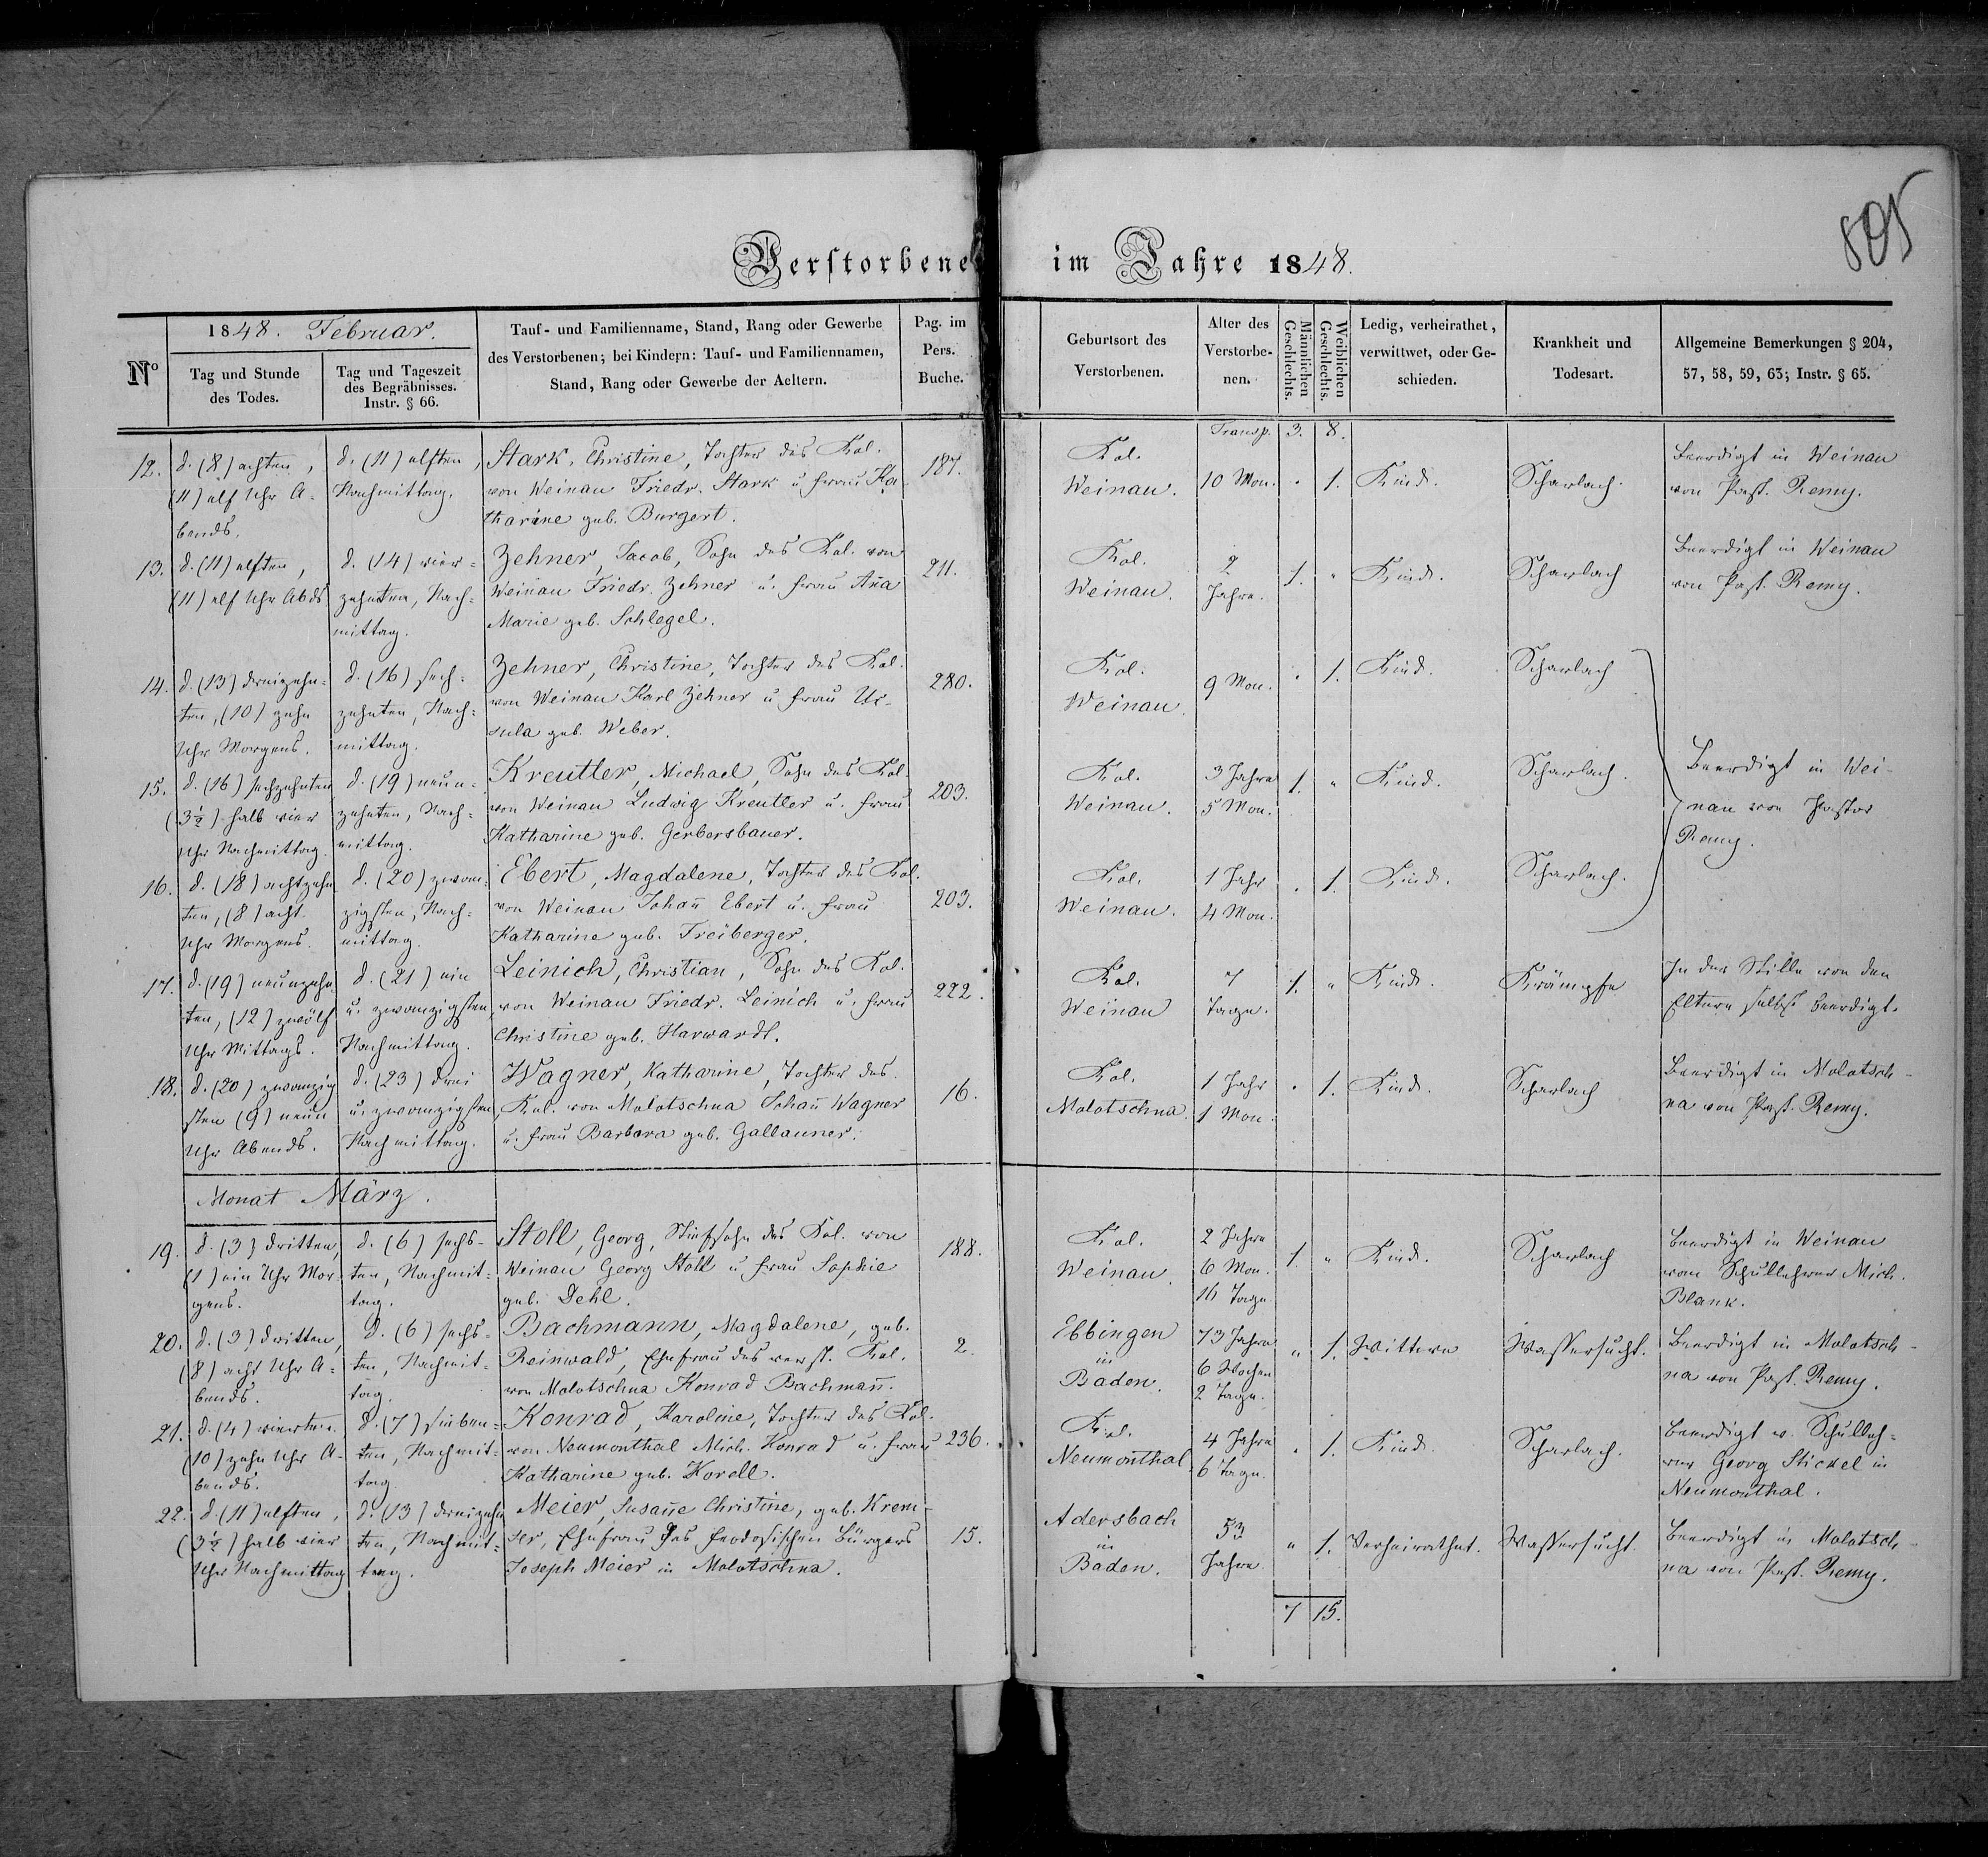 Verstorbene im Jahre 1848.
805
Nº
1848. Februar.
Tag und Stunde
des Todes.
Tag und Tageszeit
des Begräbnisses.
Instr. § 66.
Tauf- und Familienname, Stand, Rang oder Gewerbe
des Verstorbenen; bei Kindern: Tauf- und Familiennamen,
Stand, Rang oder Gewerbe der Aeltern.
Pag. im
Pers.
Buche.
Geburtsort des
Verstorbenen.
Alter des
Verstorbe-
nen.
Männlichen
Geschlechts.
Weiblichen
Geschlechts.
Ledig, verheirathet,
verwittwet, oder Ge-
schieden.
Krankheit und
Todesart.
Allgemeine Bemerkungen § 204,
57, 58, 59, 63; Instr. § 65.
Transp. 3. 8.
12.
d. (8) achten,
(11) elf Uhr A-
bends.
d. (11) elften,
Nachmittag.
Stark, Christine, Tochter des Kol.
von Weinau Friedr. Stark u. Frau Ka-
tharine geb. Burgert.
187.
Kol.
Weinau.
10 Mon.
" 1.
Kind.
Scharlach.
Beerdigt in Weinau
von Past. Remy.
13.
d. (11) elften,
(11) elf Uhr Abds
d. (14) vier-
zehnten, Nach-
mittag.
Zehner, Jacob, Sohn des Kol. von
Weinau Friedr. Zehner u. Frau Ana
Marie geb. Schlegel.
211.
Kol.
Weinau.
2
Jahre.
1. "
Kind.
Scharlach
Beerdigt in Weinau
von Past. Remy.
14.
d. (13) dreizehn-
ten, (10) zehn
Uhr Morgens.
d. (16) sech-
zehnten, Nach-
mittag.
Zehner, Christine, Tochter des Kol.
von Weinau Karl Zehner u. Frau Ur-
sula geb. Weber.
280.
Kol.
Weinau.
9 Mon.
" 1.
Kind.
Scharlach
15.
d. (16) sechzehnten
(3½) halb vier
Uhr Nachmittag.
d. (19) neun-
zehnten, Nach-
mittag.
Kreutler, Michael, Sohn des Kol.
von Weinau Ludwig Kreutler u. Frau
Katharine geb. Gerbersbauer.
203.
Kol.
Weinau.
3 Jahre
5 Mon.
1. "
Kind.
Scharlach.
Beerdigt in Wei-
nau von Pastor
Remy.
16.
d. (18) achtzehn
ten, (8) acht
Uhr Morgens.
d. (20) zwan-
zigsten, Nach-
mittag.
Ebert, Magdalene, Tochter des Kol.
von Weinau Johañ Ebert u. Frau
Katharine geb. Freiberger.
203.
Kol.
Weinau.
1 Jahr
4 Mon.
" 1.
Kind.
Scharlach.
17.
d. (19) neunzehn-
ten, (12) zwölf
Uhr Mittags.
d. (21) ein
u. zwanzigsten,
Nachmittag.
Leinich, Christian, Sohn des Kol.
von Weinau Friedr. Leinich u. Frau
Christine geb. Harwardt.
222.
Kol.
Weinau
7
Tage.
1. "
Kind.
Krämpfe
In der Stille von den
Eltern selbst beerdigt.
18.
d. (20) zwanzig
sten (9) neun
Uhr Abends.
d. (23) drei
u. zwanzigsten,
Nachmittag.
Wagner, Katharine, Tochter des
Kol. von Molotschna Johañ Wagner
u. Frau Barbara geb. Gallauner.
16.
Kol.
Molotschna.
1 Jahr
1 Mon.
" 1.
Kind.
Scharlach
Beerdigt in Molotsch-
na von Past. Remy.
Monat März.
19.
d. (3) dritten,
(1) ein Uhr Mor-
gens.
d. (6) sechs-
ten, Nachmit-
tag.
Stoll, Georg, Stiefsohn des Kol. von
Weinau Georg Stoll u. Frau Sophie
geb. Dehl.
188.
Kol.
Weinau.
2 Jahre
6 Mon.
16 Tage
1. "
Kind.
Scharlach
Beerdigt in Weinau
vom Schullehrer Mich.
Blank.
20.
d. (3) dritten,
(8) acht Uhr A-
bends.
d. (6) sechs-
ten, Nachmit-
tag.
Bachmann, Magdalene, geb.
Reinwald, Ehefrau des verst. Kol.
von Molotschna Konrad Bachmañ.
2.
Ebbingen
in
Baden.
73 Jahre
6 Wochen
2 Tage.
" 1.
Wittwe
Wassersucht.
Beerdigt in Molotsch-
na von Past. Remy.
21.
d. (4) vierten
(10) zehn Uhr A-
bends.
d. (7) sieben-
ten, Nachmit-
tag
Konrad, Karoline, Tochter des Kol.
von Neumonthal Mich. Konrad u. Frau
Katharine geb. Korell.
236.
Kol.
Neumonthal
4 Jahre
6 Tage.
" 1.
Kind.
Scharlach.
Beerdigt v. Schulleh-
rer Georg Stickel in
Neumonthal.
22.
d. (11) elften,
(3½) halb vier
Uhr Nachmittag
d. (13) dreizehn
ten, Nachmit-
tag.
Meier, Susañe Christine, geb. Krem-
ser, Ehefrau des feodosischen Bürgers
Joseph Meier in Molotschna.
15.
Adersbach
in
Baden.
53
Jahre
" 1.
Verheirathet.
Wassersucht.
Beerdigt in Molotsch-
na von Past. Remy.
7 15.